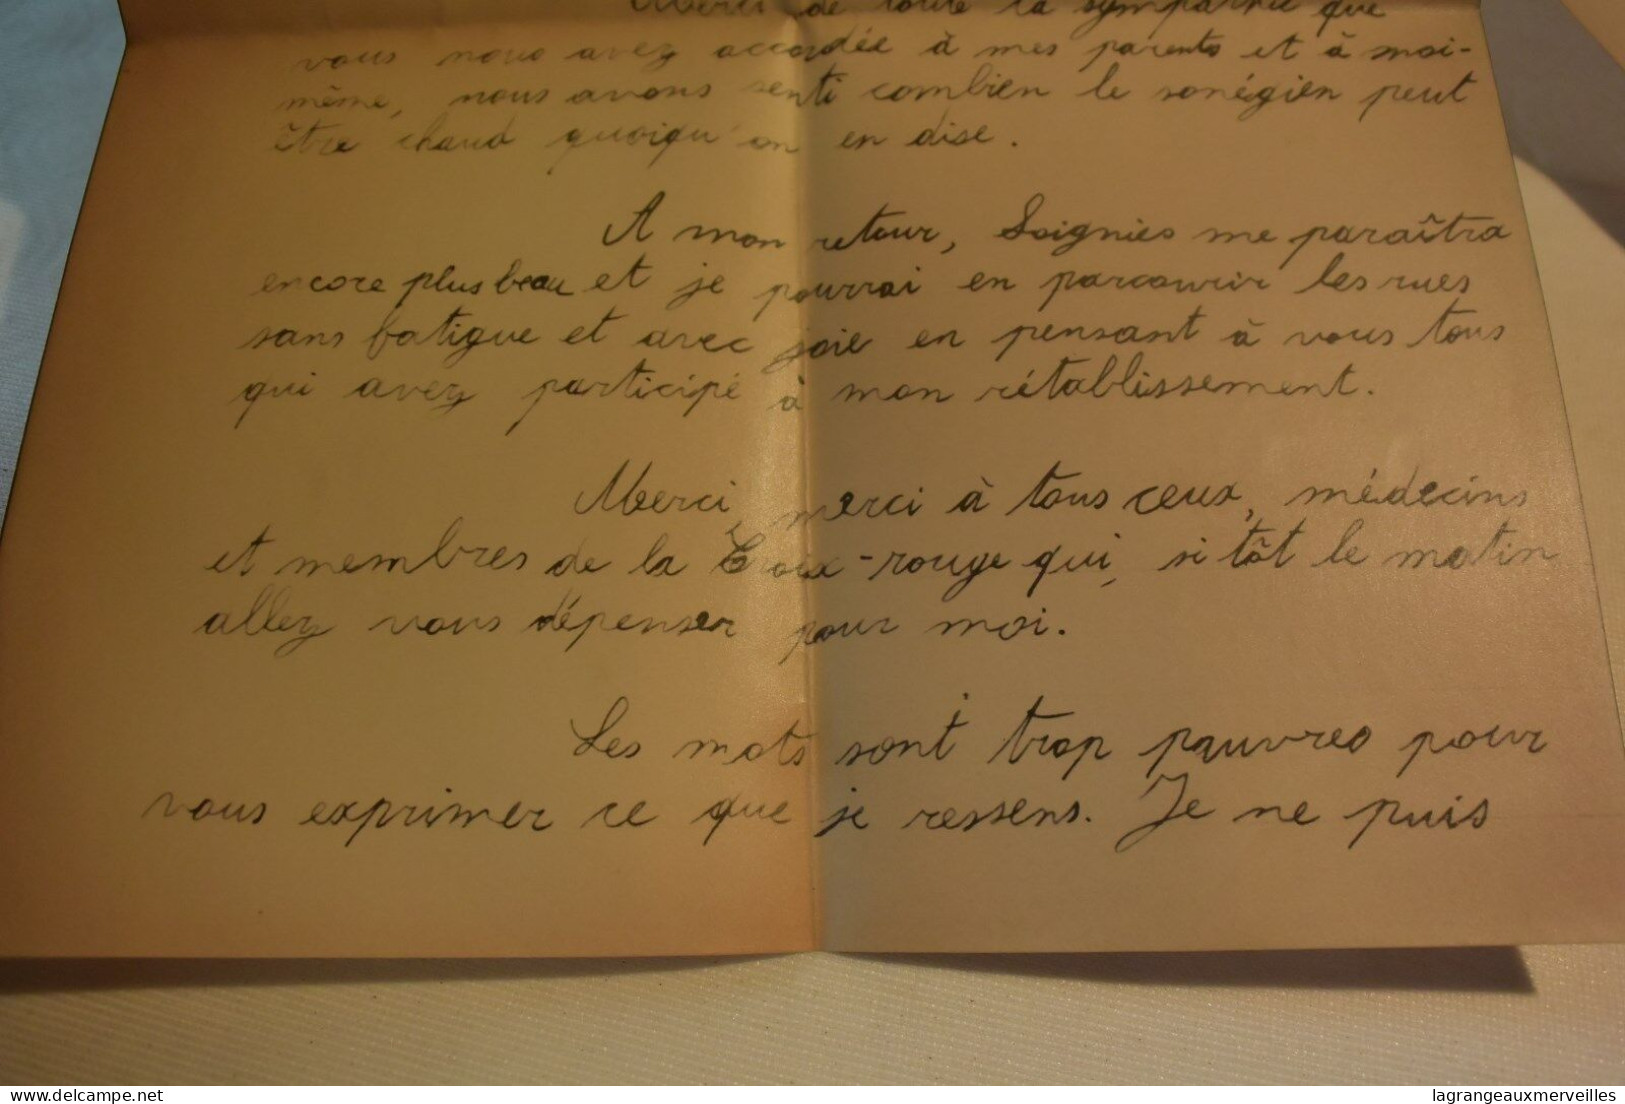 Merci de toute la sympathie que
vous nous avez accordée à mes parents et à moi-
même, nous avons senti combien le sonégien peut
être chaud quoiqu'on en dise.
A mon retour, Soignies me paraîtra
encore plus beau et je pourrai en parcourir les rues
sans fatigue et avec joie en pensant à vous tous
qui avez participé à mon rétablissement.
Merci, merci à tous ceux, médecins
et membres de la Croix-rouge qui, si tôt le matin
allez vous dépenser pour moi.
Les mots sont trop pauvres pour
vous exprimer ce que je ressens. Je ne puis
delcampe.net
lagrangeauxmerveilles